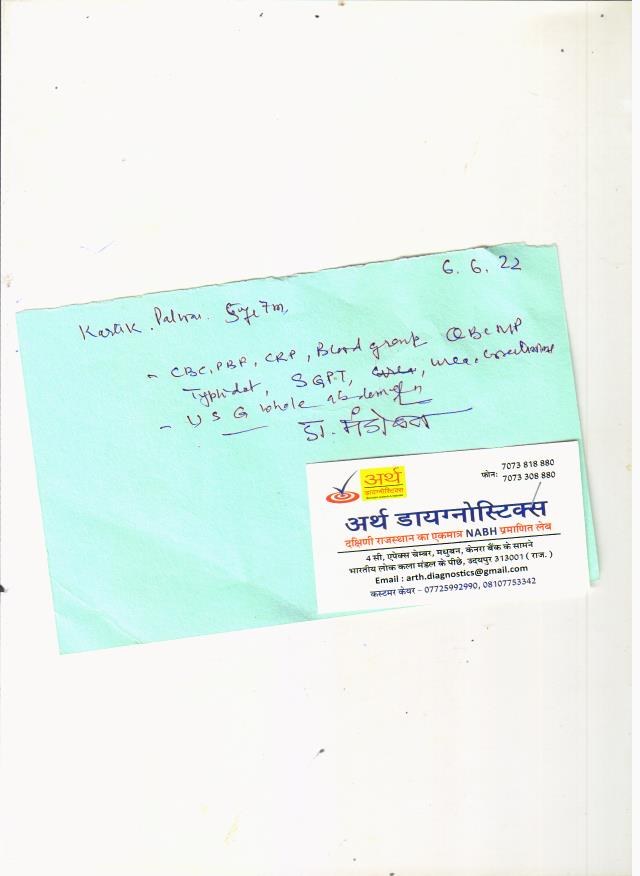 6. 6. 22
Kartik. Palwa. 5yr 7m
- CBC, PBF, CRP, Blood group QBC MP
Typhidot, SGPT, urea, creatinine
- USG whole abdomen
डा. मंडोवरा
अर्थ
डायग्नोस्टिक्स
फोन: 7073 818 880
7073 308 880
अर्थ डायग्नोस्टिक्स
दक्षिणी राजस्थान का एकमात्र NABH प्रमाणित लेब
4 सी, एपेक्स चेम्बर, मधुबन, केनरा बैंक के सामने
भारतीय लोक कला मंडल के पीछे, उदयपुर 313001 ( राज. )
Email : arth.diagnostics@gmail.com
कस्टमर केयर - 07725992990, 08107753342